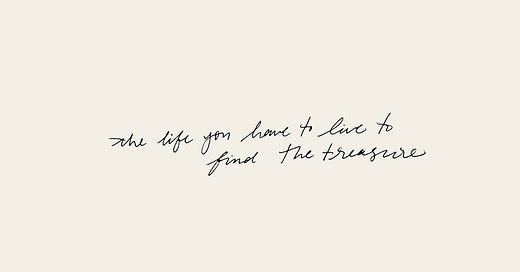 the life you have to live to
find the treasure